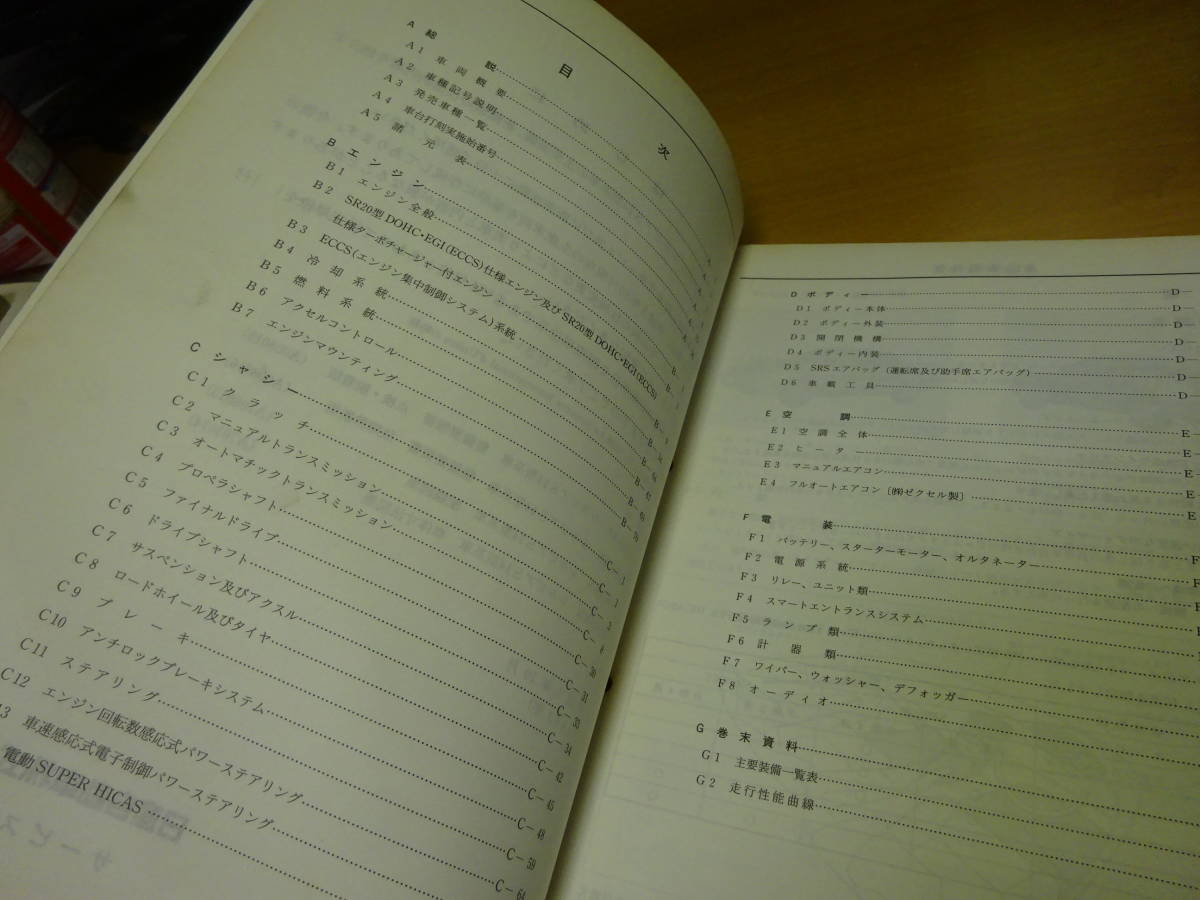 目次
A 総説
A1 車両概要
A2 車種記号説明
A3 発売車種一覧
A4 車台打刻実施始番号
A5 諸元表
B エンジン
B1 エンジン全般
B2 SR20型DOHC・EGI(ECCS)仕様エンジン及びSR20型DOHC・EGI(ECCS)
仕様ターボチャージャー付エンジン
B3 ECCS(エンジン集中制御システム)系統
B4 冷却系統
B5 燃料系統
B6 アクセルコントロール
B7 エンジンマウンティング
C シャシー
C1 クラッチ C-1
C2 マニュアルトランスミッション
C3 オートマチックトランスミッション
C4 プロペラシャフト
C5 ファイナルドライブ C-30
C6 ドライブシャフト C-31
C7 サスペンション及びアクスル C-33
C8 ロードホイール及びタイヤ C-34
C9 ブレーキ C-42
C10 アンチロックブレーキシステム C-45
C11 ステアリング C-48
C12 エンジン回転数感応式パワーステアリング C-59
13 車速感応式電子制御パワーステアリング C-64
電動SUPER HICAS
D ボディー D-
D1 ボディー本体 D-
D2 ボディー外装 D-
D3 開閉機構 D-
D4 ボディー内装 D-
D5 SRSエアバッグ(運転席及び助手席エアバッグ) D-
D6 車載工具 D-
E 空調 E-
E1 空調全体 E-
E2 ヒーター E-
E3 マニュアルエアコン E-
E4 フルオートエアコン〔㈱ゼクセル製〕 E
F 電装 F
F1 バッテリー、スターターモーター、オルタネーター F
F2 電源系統
F3 リレー、ユニット類
F4 スマートエントランスシステム
F5 ランプ類
F6 計器類
F7 ワイパー、ウォッシャー、デフォッガー
F8 オーディオ
G 巻末資料
G1 主要装備一覧表
G2 走行性能曲線